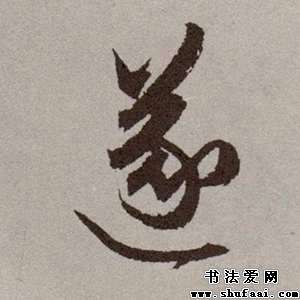 遂
书法爱网
www.shufaai.com